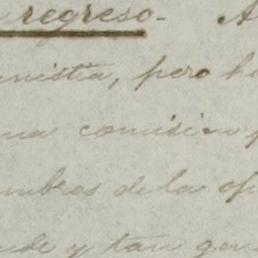 regreso- A
nistia, pero h
na comision
mbres de la op
nde y tan gen